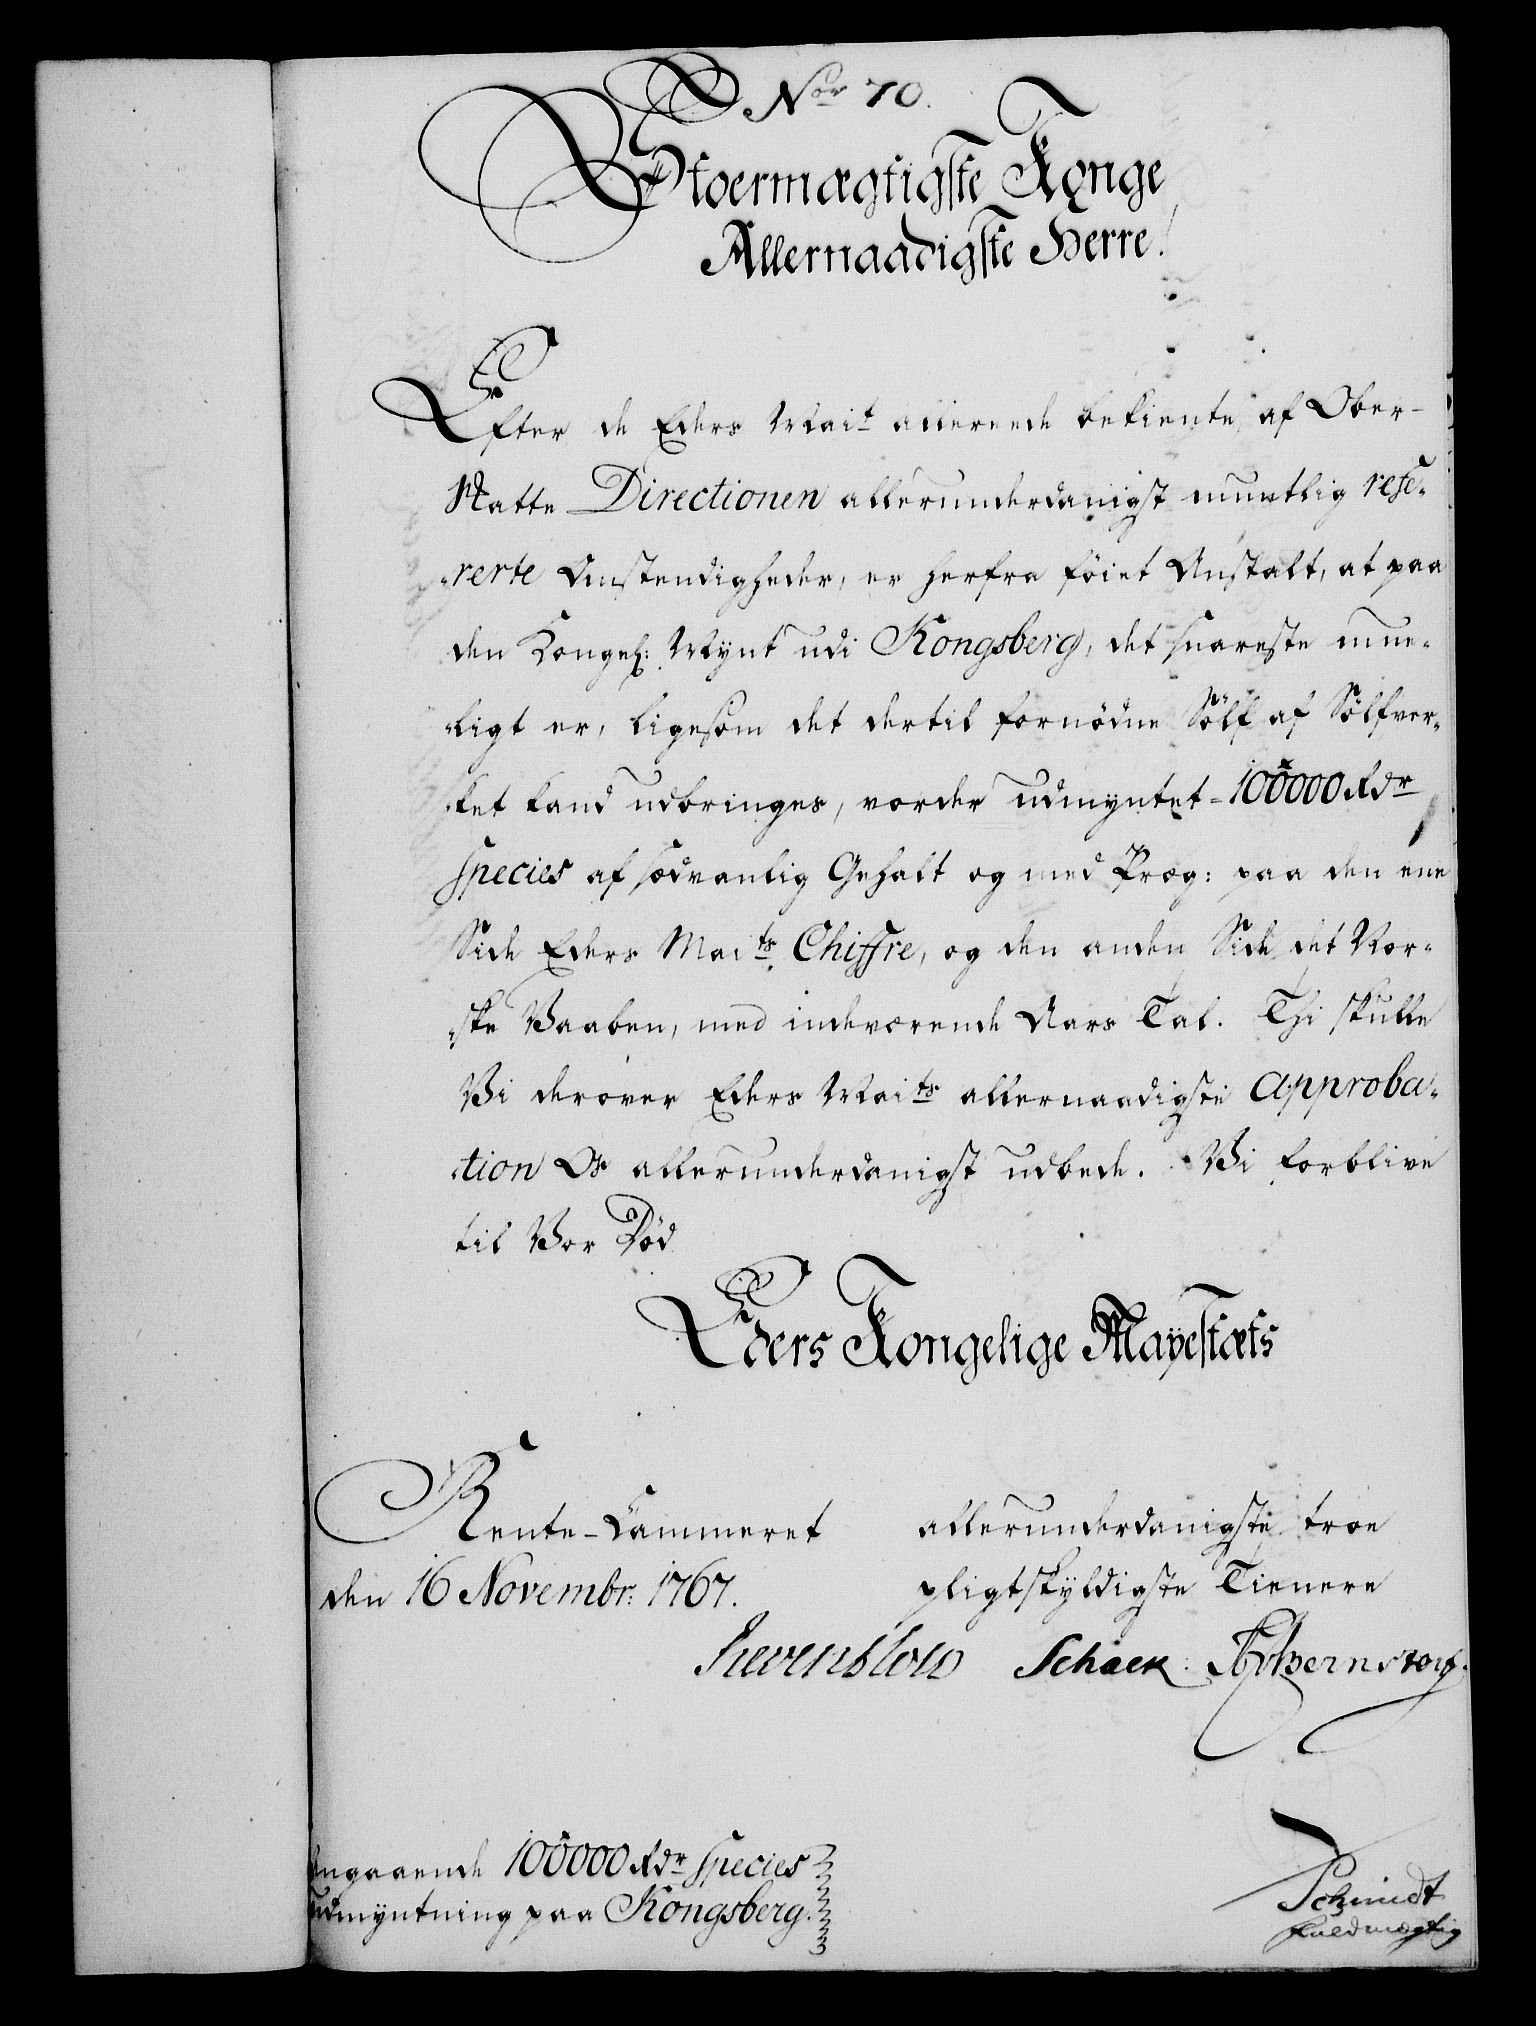 Nor 70.
Stoermægtigste Konge
Allernaadigste Herre!
Efter de Eders Mait allereede bekiente, af Ober-
Skatte Directionen allerunderdanigst mundtlig refe-
rerte Omstendigheder, er herfra föiet Anstalt, at paa
den Kongel: Mynt udi Kongsberg, det snareste mue-
ligt er, ligesom det dertil fornödne Sölf af Sölfver-
ket kand udbringes, vorder udmyntet = 100000 Rdr
Species af sædvanlig Gehalt og med Præg: paa den ene
Side Eders Maits Chiffre, og den anden Side det Nor-
ske Vaaben, med indeværende Aars Tal. Thi skulle
Vi derover Eders Maits allernaadigste Approba-
tion Os allerunderdanigst udbede. Vi forblive
til Vor Död
Eders Kongelige Mayestæts
Rente-Cammeret allerunderdanigste troe
den 16 Novembr: 1767. pligtskyldigste Tienere
Reventlow Schack. Bernstorff.
Angaaende 100000 Rdr Species
Udmyntning paa Kongsberg.
Schmidt
Fuldmægtig